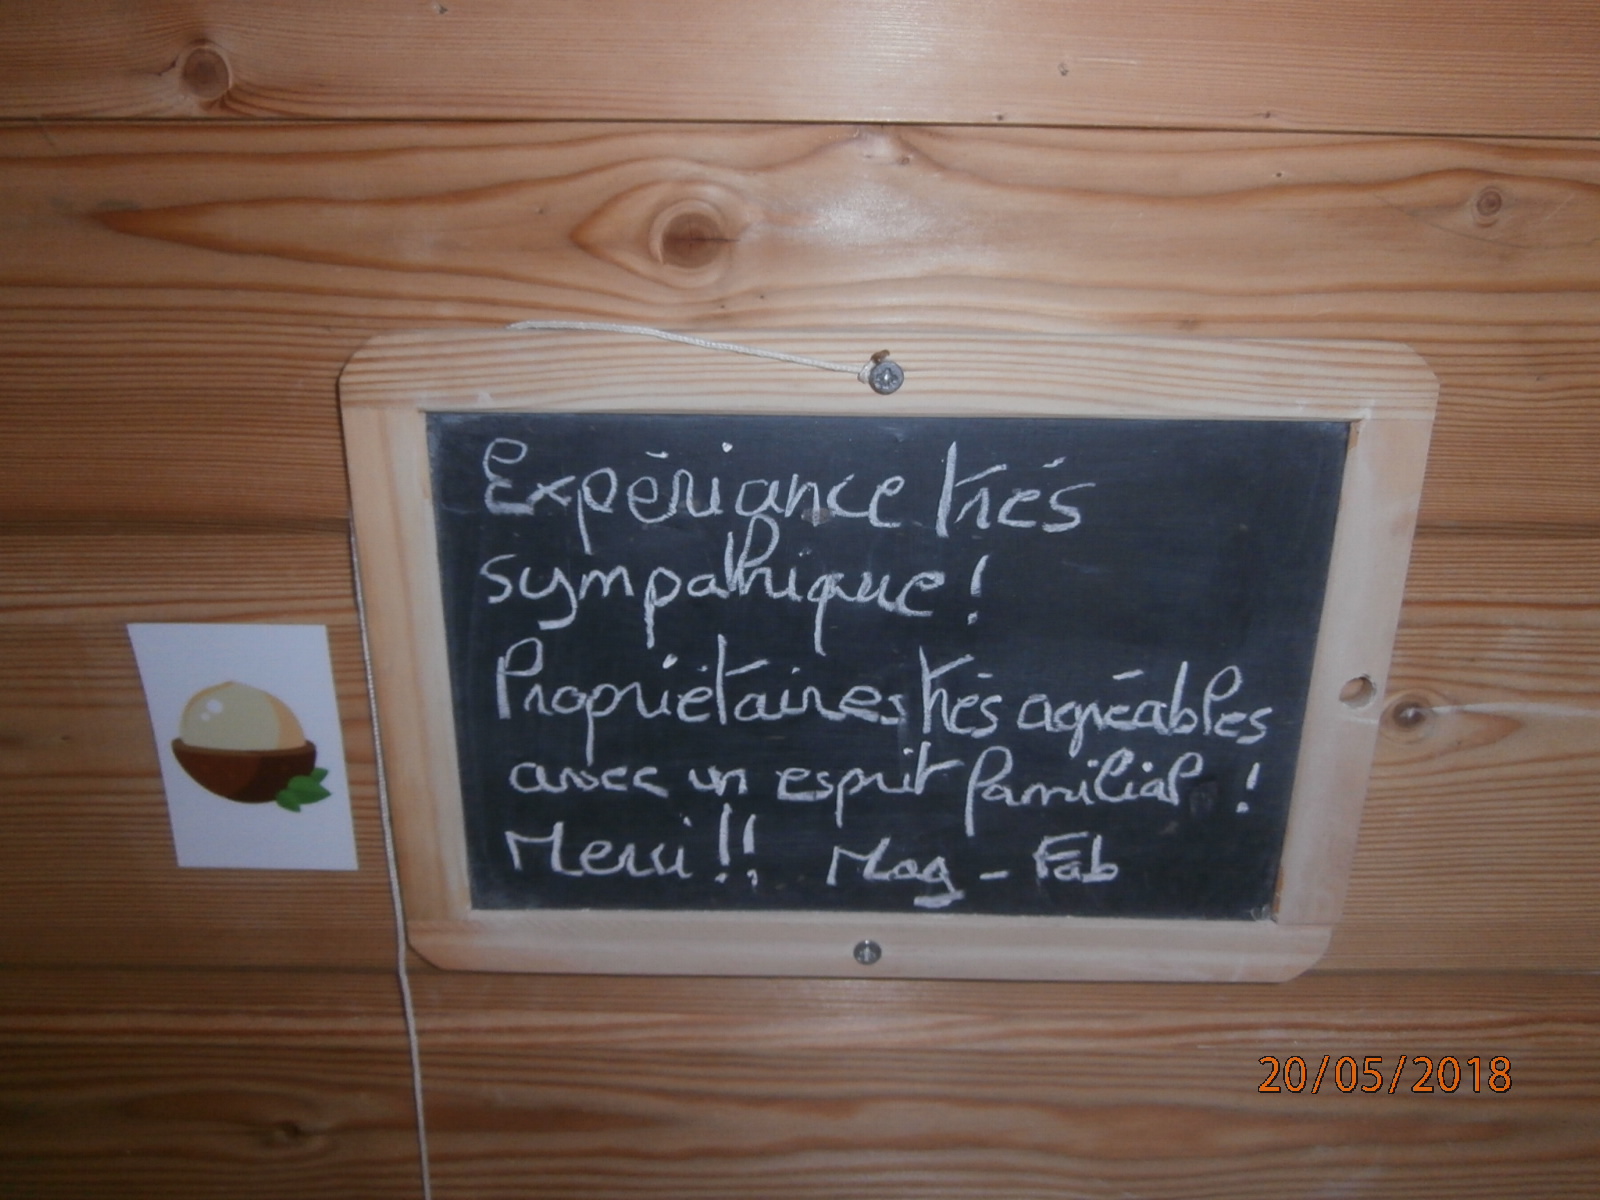 Expériance très
sympathique !
Propriétaires très agréables
avec un esprit familial !
Merci !! Mag - Fab
20/05/2018